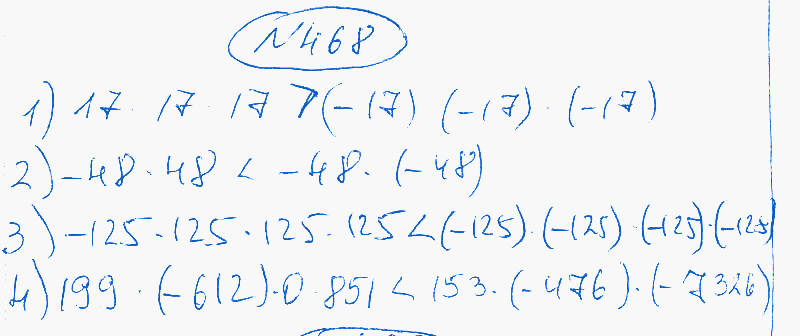 N468
1) 17 · 17 · 17 > (-17) (-17) · (-17)
2) -48 · 48 < -48 · (-48)
3) -125 · 125 · 125 · 125 < (-125) · (-125) · (-125) · (-125)
4) 199 · (-612) · 0 · 851 < 153 · (-476) · (-7326)